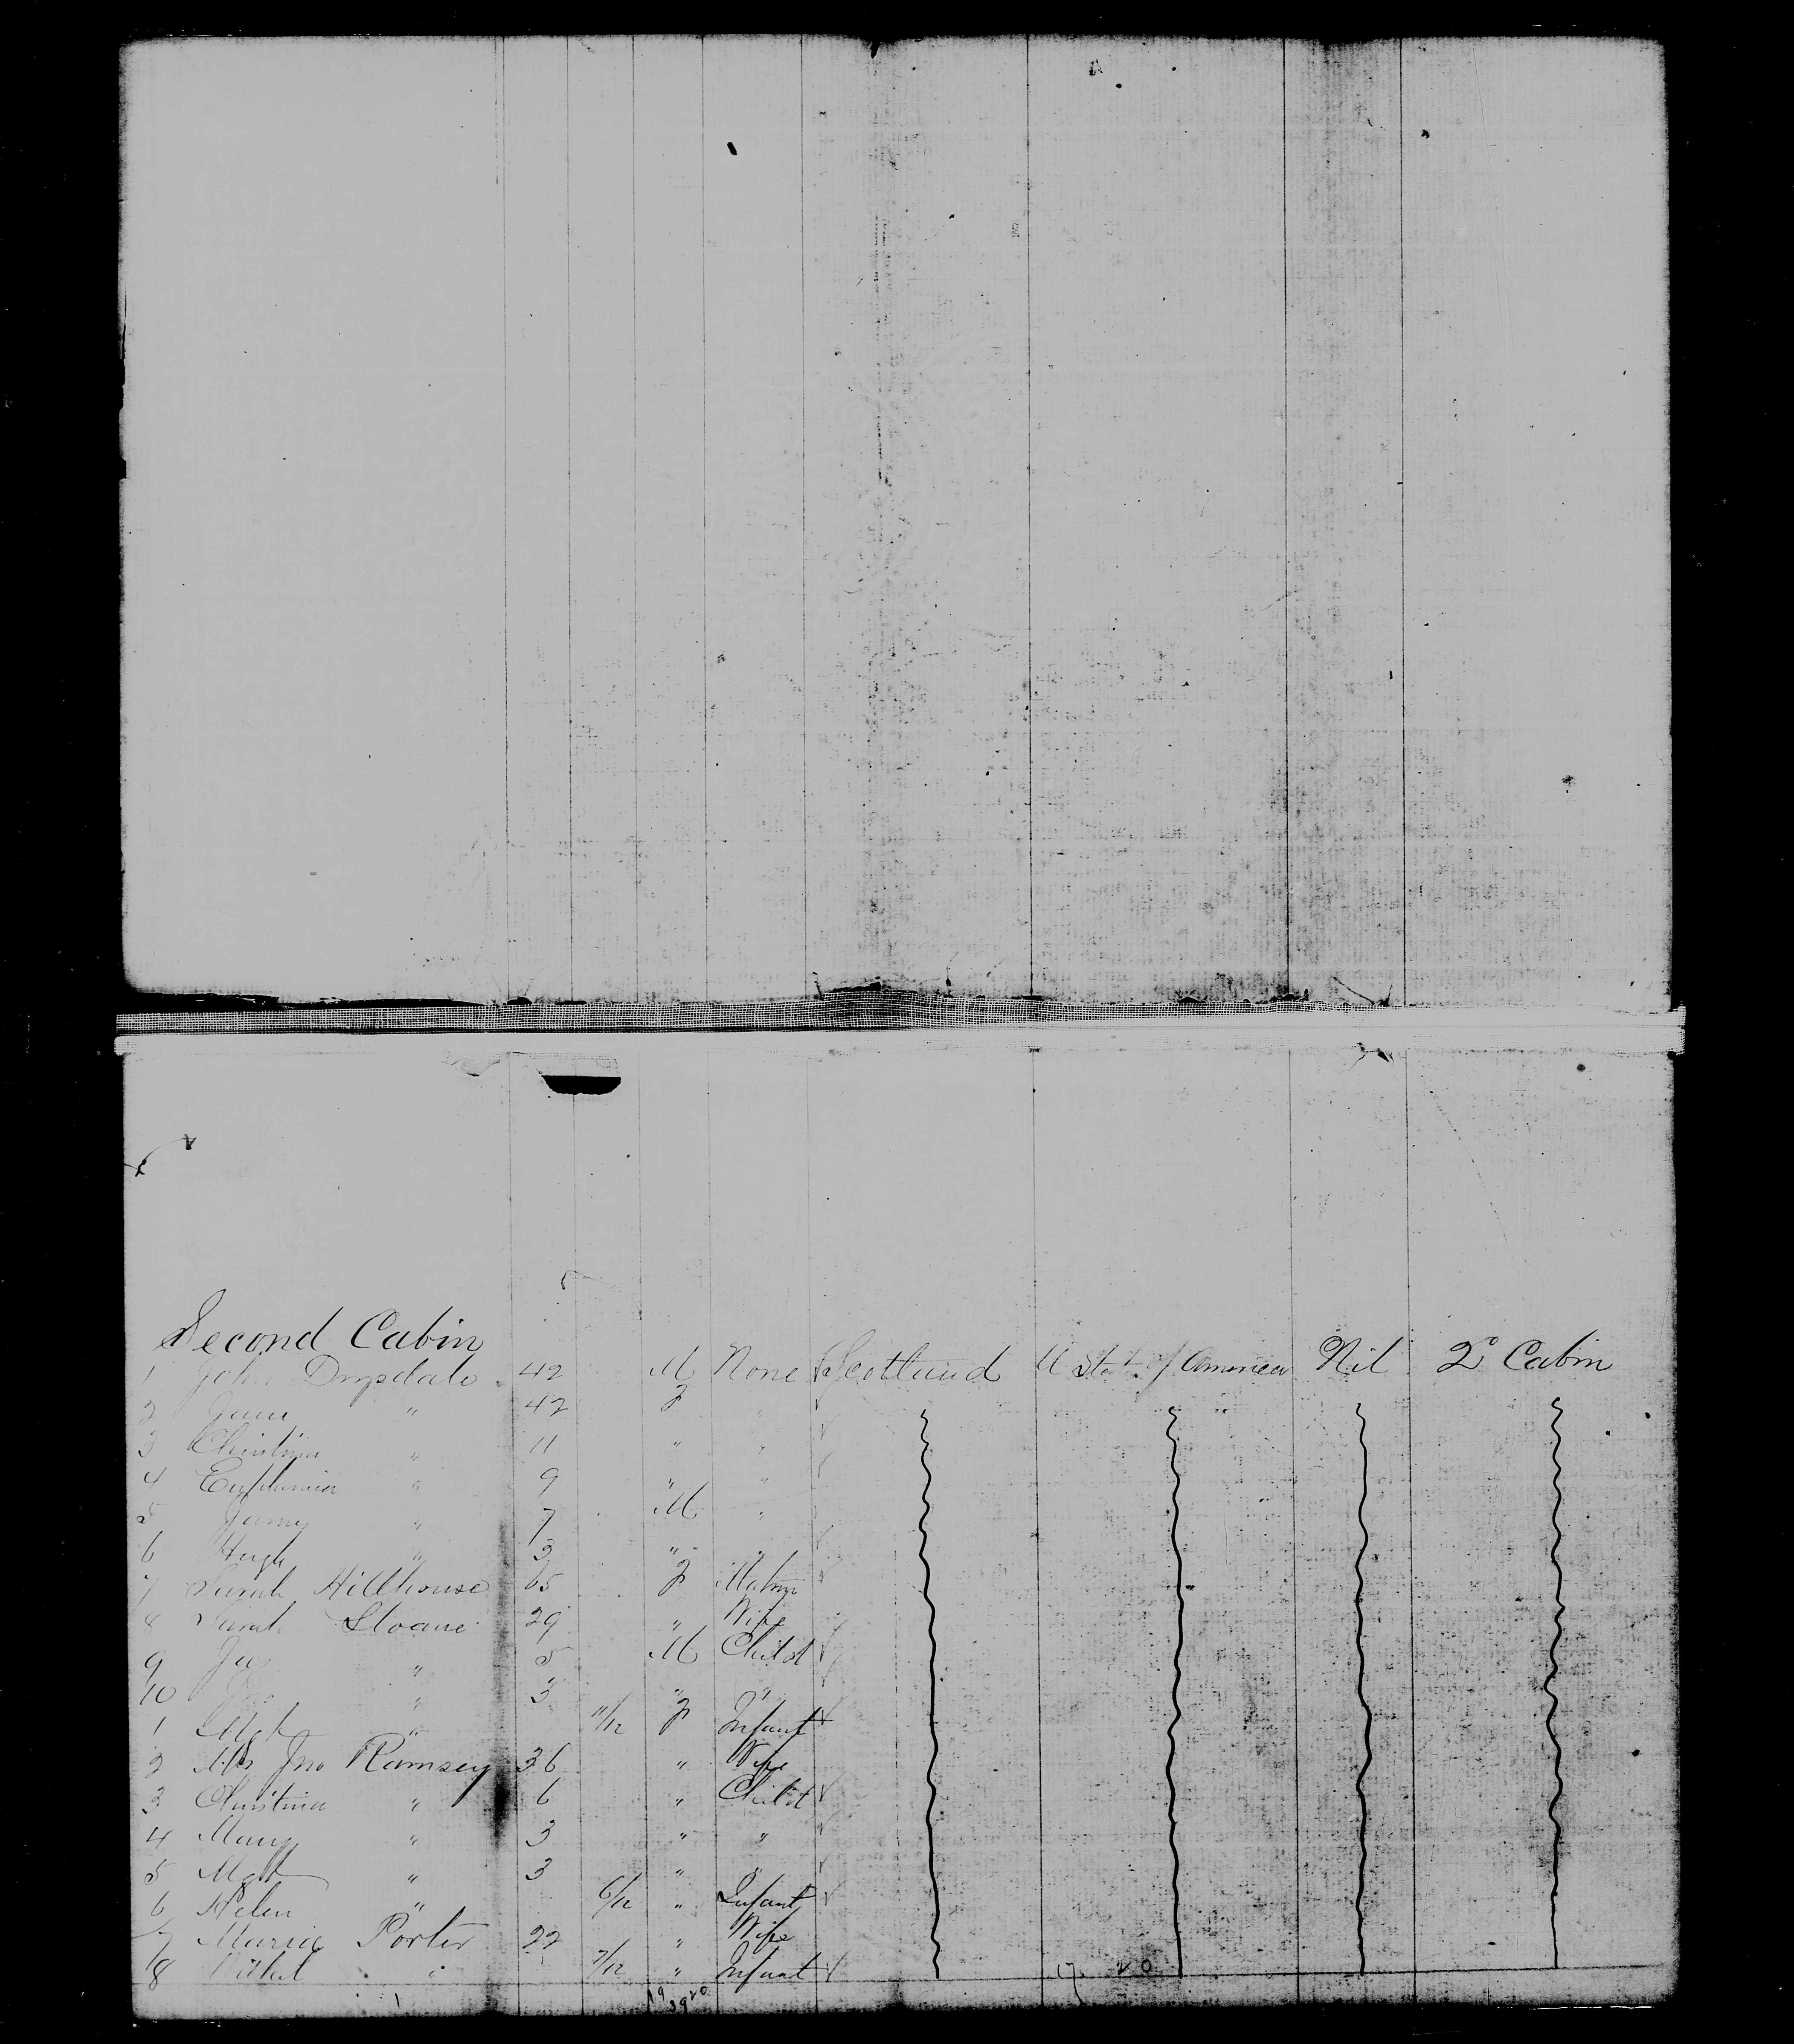 Second Cabin
1 John Drysdale 42 M None Scotland U States of America Nil 2° Cabin
2 Jane " 42 F "
3 Christina " 11 " "
4 Euphemia " 9 " "
5 " 7 M "
6 Hugh " 3 " "
7 Sarah Hillhouse 65 F
8 Sarah Sloane 29 " Wife
9 Jas " 5 M Child
10 " 3 " "
1 Mgt " 11/12 F Infant
2 Mrs Jno Ramsey 36 " Wife
3 Christina " 6 " Child
4 Mary " 3 " "
5 Mgt " 3 " "
6 Helen " 6/12 " Infant
7 Porter 22 " Wife
8 " 7/12 " Infant